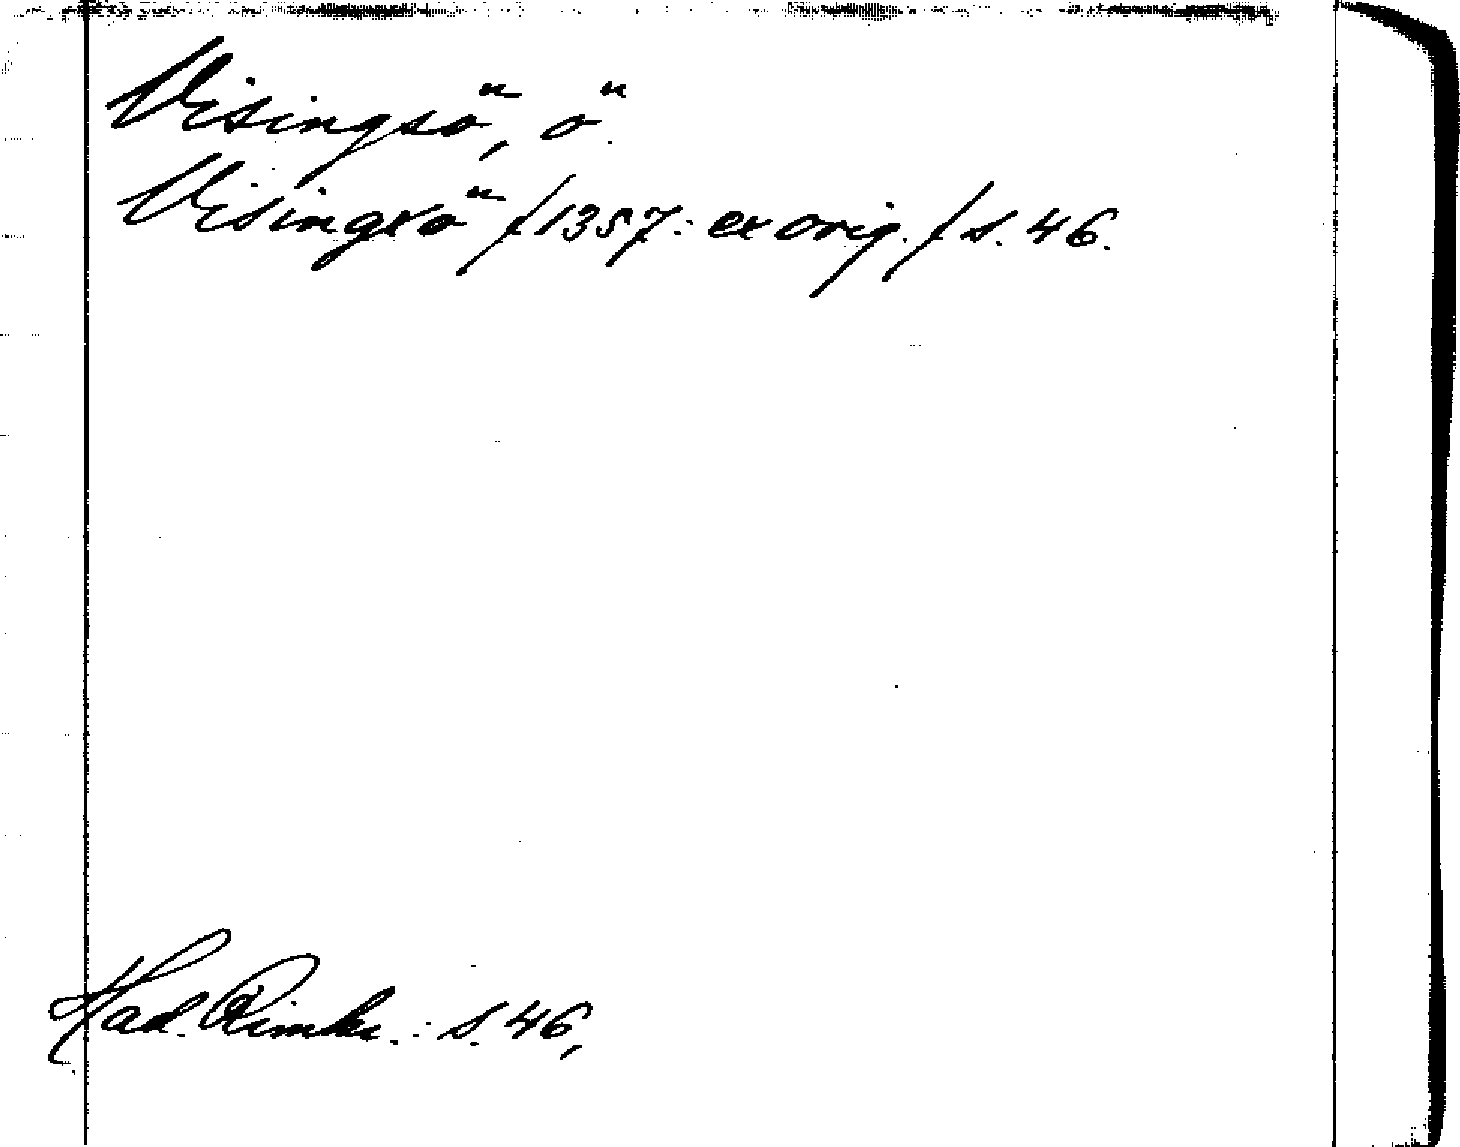 Visingsö, ö.
Visingsö /1357: ex orig./ s. 46.
Had. Rimkr.: s. 46,